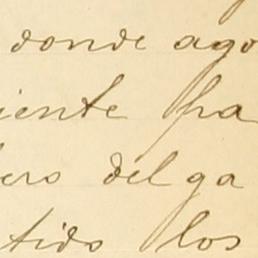 donde ago
iente ha
ero del ga
tido los